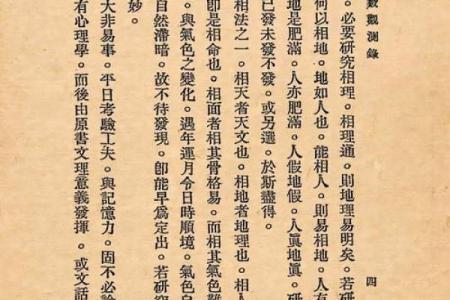 觀測錄
四
。必要研究相理。相理通。則地理易明矣。若研
何以相地。地如人也。能相人。則易相地。人有
地是肥滿。人亦肥滿。人假地假。人眞地眞。研
已發未發不發。或另選。於斯盡得。
相法之一。相天者天文也。相地者地理也。相人
卽是相命也。相面者相其骨格易。而相其氣色難
。與氣色之變化。遇年運月令日時順境。氣色自
自然滯暗。故不待發現。卽能早爲定出。若研究
妙。
大非易事。平日考驗工夫。與記憶力。固不必論
有心理學。而後由原書文理意義發揮。或文話